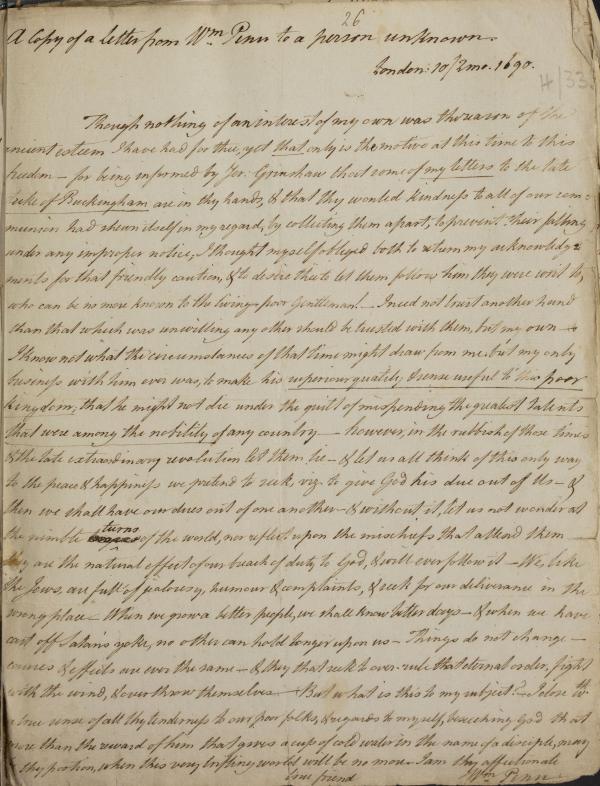 26
A Copy of a Letter from Wm Penn to a person unknown.
London: 10/2mo. 1690.
4/33.
Though nothing of an interest of my own was the reason of the
ancient esteem I have had for thee, yet that only is the motive at this time to this
freedom — for being informed by Jer: Grimshaw that some of my letters to the late
Duke of Buckingham are in thy hands, & that thy wonted kindness to all of our com=
munion had shewn itself in my regard, by collecting them apart, to prevent their falling
under any improper notice, I thought myself obliged both to return my acknowledg=
ments for that friendly caution, & to desire thee to let them follow him they were writ to,
who can be no more known to the living — poor Gentleman! — I need not trust another hand
than that which was unwilling any other should be trusted with them, but my own —
I know not what the circumstances of that time might draw from me, but my only
business with him ever was, to make his superiour quality & sense useful to this poor
Kingdom, that he might not die under the guilt of mispending the greatest talents
that were among the nobility of any country — however, in the rubbish of those times
& the late extraordinary revolution let them lie — & let us all think of this only way
to the peace & happiness we pretend to seek viz. to give God his due out of Us — &
then we shall have our dues out of one another — & without it, let us not wonder at
the nimble turns of the world, nor reflect upon the mischiefs that attend them —
they are the natural effect of our breach of duty to God, & will ever follow it — We, like
the Jews, are full of jealousy, humour & complaints, & seek for our deliverance in the
wrong place — When we grow a better people, we shall know better days — & when we have
cast off Satan's yoke, no other can hold longer upon us — Things do not change —
courses & effects are ever the same — & they that seek to over-rule that eternal order, fight
with the wind, & overthrow themselves — But what is this to my subject? — I close with
a true sense of all thy tenderness to our poor folks, & regards to myself, beseeching God that
more than the reward of him that gives a cup of cold water in the name of a disciple, may
be thy portion, when this very bustling world will be no more — I am thy affectionate
true friend
Wm Penn